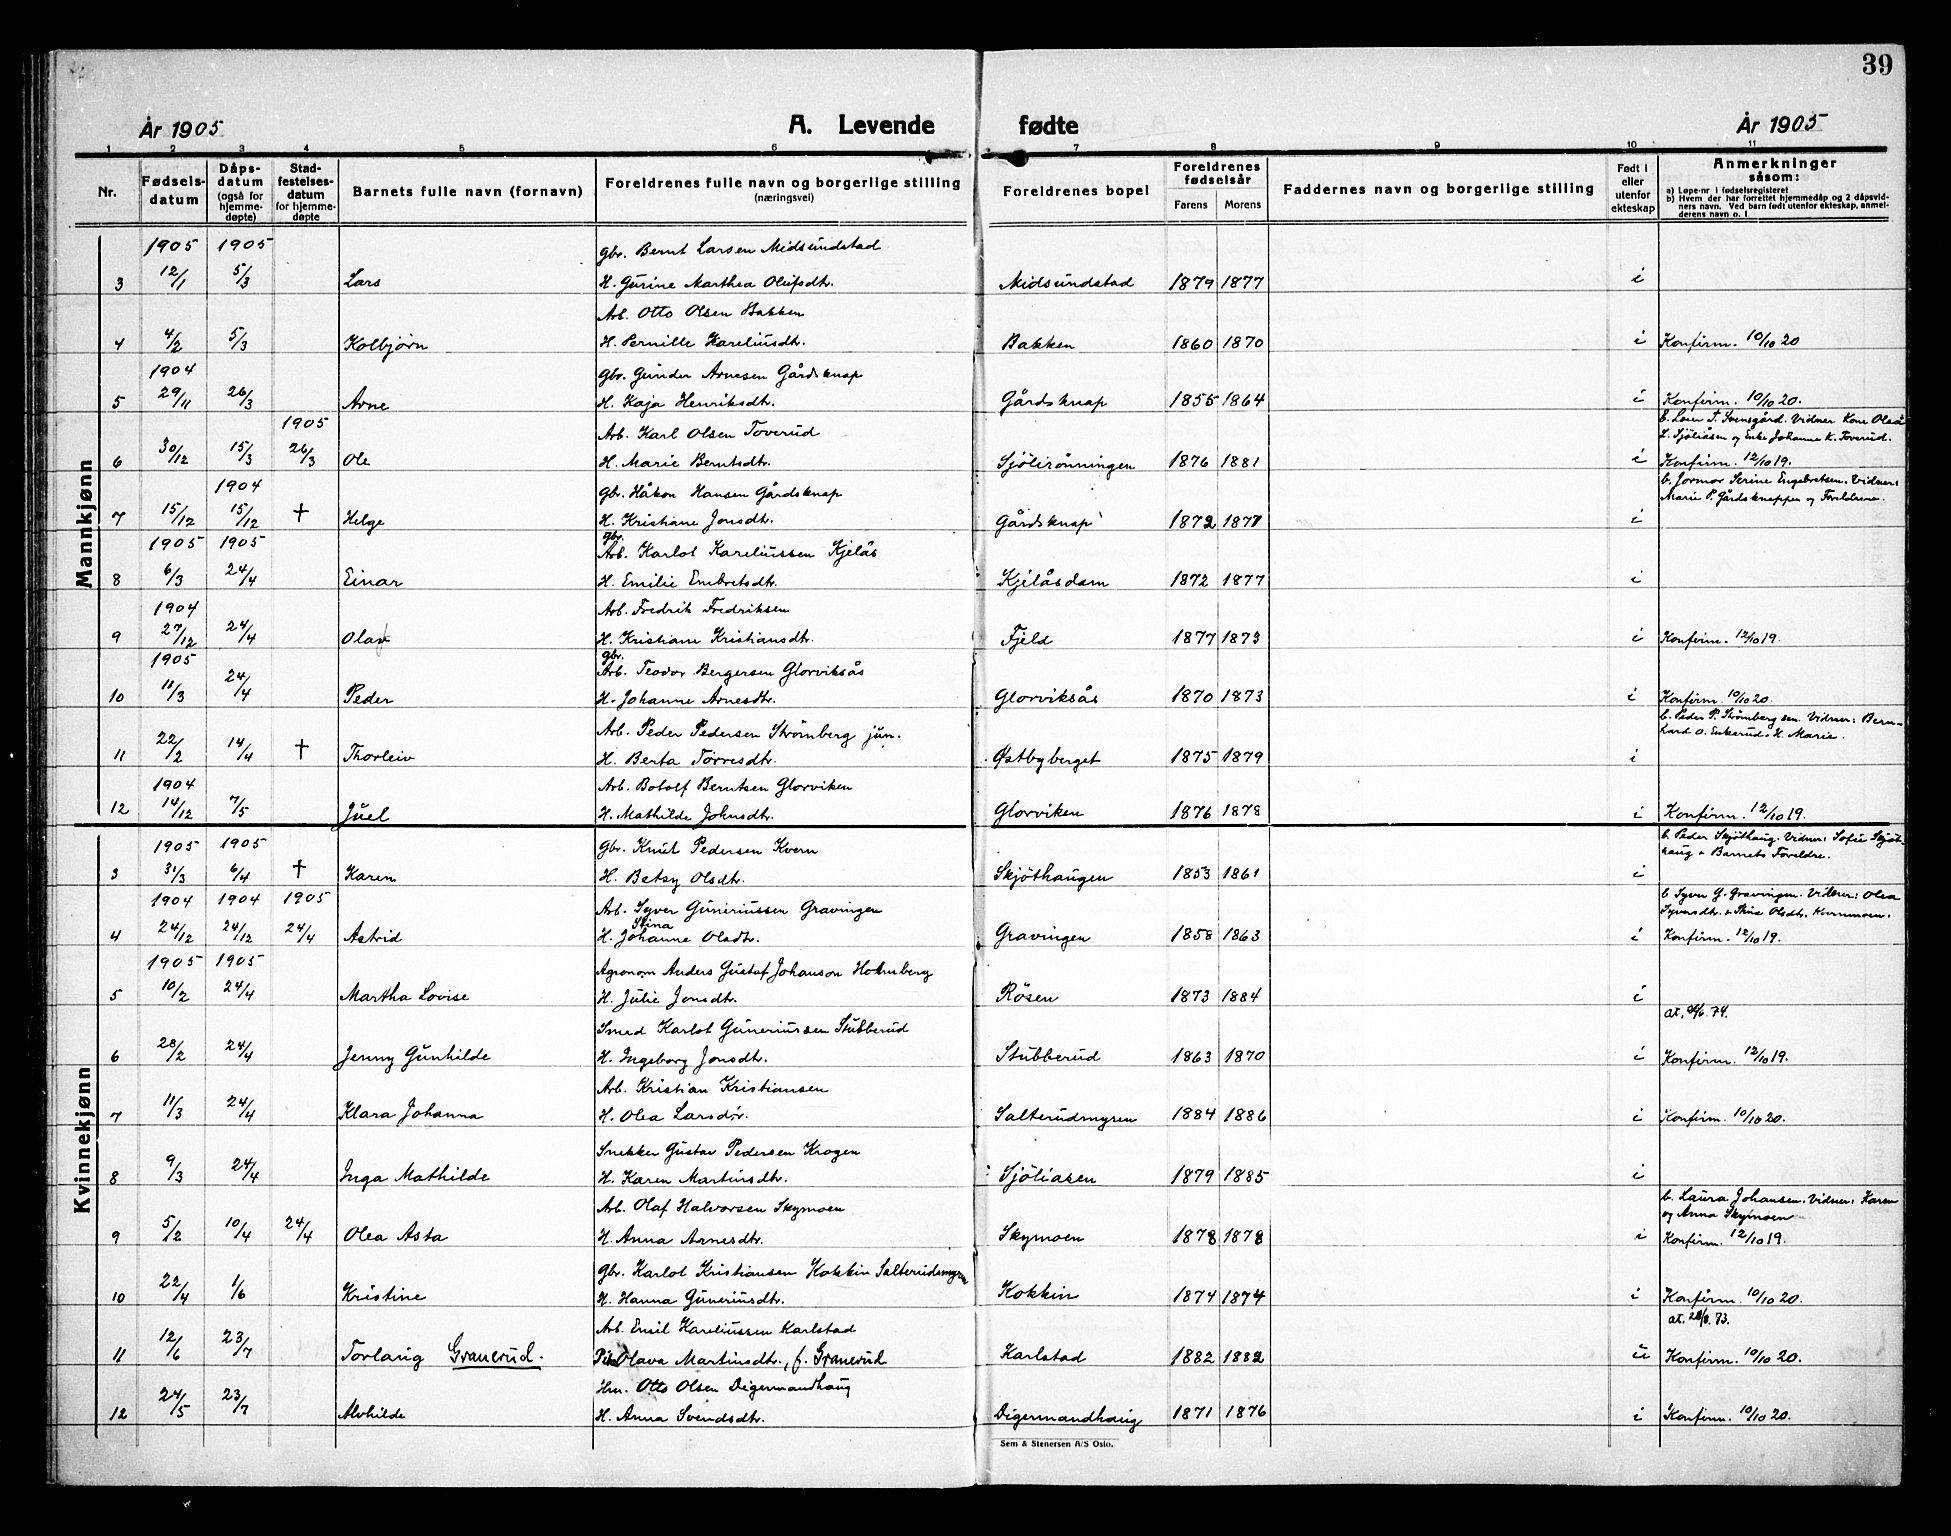 39
År 1905 A. Levende fødte År 1905
1 2 3 4 5 6 7 8 9 10 11
Nr. Fødsels-datum Dåps-datum (også for hjemme-døpte) Stad-festelses-datum for hjemme-døpte Barnets fulle navn (fornavn) Foreldrenes fulle navn og borgerlige stilling (næringsvei) Foreldrenes bopel Foreldrenes fødselsår Farens Morens Faddernes navn og borgerlige stilling Født i eller utenfor ekteskap Anmerkninger såsom:
a) Løpe-nr i fødselsregisteret
b) Hvem der har forrettet hjemmedåp og 2 dåpsvidners navn. Ved barn født utenfor ekteskap, anmelderens navn o. l
Mannkjønn
1905 1905 Gbr. Bernt Larsen Midsundstad
3 12/1 5/3 Lars H. Gurine Marthea Olufsdtr. Midsundstad 1879 1877 i
Arb. Otto Olsen Bakken
4 4/2 5/3 Kolbjørn H. Pernille Kareliusdtr. Bakken 1860 1870 i Konfirm. 10/10 20
1904 Gbr. Gunder Arnesen Gårdsknap
5 29/11 26/3 Arne H. Kaja Henriksdtr. Gårdsknap 1855 1864 i Konfirm. 10/10 20.
1905 Arb. Karl Olsen Toverud b. Svensgård. Vidner Kone Olea
L. Sjöliåsen og Enke Johanne K. Toverud.
6 30/12 15/3 26/3 Ole H. Marie Berntsdtr. Sjölirönningen 1876 1881 i Konfirm. 12/10 19.
1904 Gbr. Håkon Hansen Gårdsknap b. Jormor Serine Engebretsen. Vidner:
Marie P. Gårdsknappen og Foreldrene.
7 15/12 15/12 † Helge H. Kristiane Jonsdtr. Gårdsknap 1872 1877 i
1905 1905 gbr. Arb. Karlot Kareliussen Kjelås
8 6/3 24/4 Einar H. Emilie Embretsdtr. Kjelåsdam 1872 1877 i
1904 Arb. Fredrik Fredriksen
9 27/12 24/4 Olav H. Kristiane Kristiansdtr. Fjeld 1877 1873 i Konfirm. 12/10 19.
1905 gbr. Arb. Teodor Bergersen Glorviksås
10 11/3 24/4 Peder H. Johanne Arnesdtr. Glorviksås 1870 1873 i Konfirm. 10/10 20.
Arb. Peder Pedersen Strömberg jun. b. Peder P. Strömberg sen. Vidner: Bern-
hard O. Enkerud & H. Marie.
11 22/2 14/4 † Thorleiv H. Berta Torresdtr. Østbyberget 1875 1879 i
1904 Arb. Botolf Berntsen Glorviken
12 14/12 7/5 Juel H. Mathilde Johnsdtr. Glorviken 1876 1878 i Konfirm. 12/10 19.
Kvinnekjønn
1905 1905 Gbr. Knut Pedersen Kvern b. Peder Skjöthaug. Vidner: Sofie Skjöt-
haug & Barnets Foreldre.
3 31/3 6/4 † Karen H. Betsy Olsdtr. Skjöthaugen 1853 1861 i
1904 1904 1905 Arb. Syver Guneriussen Gravingen b Syver G. Gravingen. Vidner: Olea
Syversdtr. & Stina Olsdtr. Kvernmoen.
4 24/12 24/12 24/4 Astrid H. Stina Johanne Olsdtr. Gravingen 1858 1863 i Konfirm. 12/10 19.
1905 1905 Agronom Anders Gustaf Johanson Holmberg
5 10/2 24/4 Martha Lovise H. Julie Jonsdtr. Rösen 1873 1884 i
Smed Karlot Guneriussen Stubberud
6 28/2 24/4 Jenny Gunhilde H. Ingeborg Jonsdtr. Stubberud 1863 1870 i Konfirm. 12/10 19.
Arb. Kristian Kristiansen
7 11/3 24/4 Klara Johanna H. Olea Larsdtr. Salterudmyren 1884 1886 i Konfirm. 10/10 20.
Snekker Gustav Pedersen Krogen
8 9/3 24/4 Inga Mathilde H. Karen Martinsdtr. Sjöliasen 1879 1885 i
Arb. Olaf Halvorsen Skymoen b. Laura Johansen. Vidner: Karen
og Anna Skymoen
9 5/2 10/4 24/4 Olea Asta H. Anna Arnesdtr. Skymoen 1878 1878 i Konfirm. 12/10 19.
Gbr. Karlot Kristiansen Kokkin Salterudsmyren
10 22/4 1/6 Kristine H. Hanna Guneriusdtr. Kokkin 1874 1874 i Konfirm. 10/10 20.
Arb. Emil Kareliussen Karlstad
11 12/6 23/7 Torlaug Granerud. Pike Olava Martinsdtr., f. Granerud Karlstad 1882 1882 u Konfirm. 10/10 20.
Hm. Otto Olsen Digermandhaug
12 24/5 23/7 Alvhilde H. Anna Svendsdtr. Digermandhaug 1871 1876 i Konfirm. 10/10 20.
Sem & Stenersen A/S Oslo.